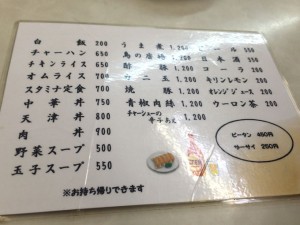 白飯 200
チャーハン 650
チキンライス 650
オムライス 700
スタミナ定食 700
中華丼 700
天津丼 700
肉丼 900
野菜スープ 500
玉子スープ 550
うま煮 1,200
鳥の唐揚 1,200
酢豚 1,200
カニ玉 1,200
焼豚 1,200
青椒肉絲 1,200
チャーシューの
辛子あえ 1,200
ビール
日本酒 350
コーラ 200
キリンレモン 200
オレンジジュース 200
ウーロン茶 200
ピータン 450円
ザーサイ 200円
※お持ち帰りできます